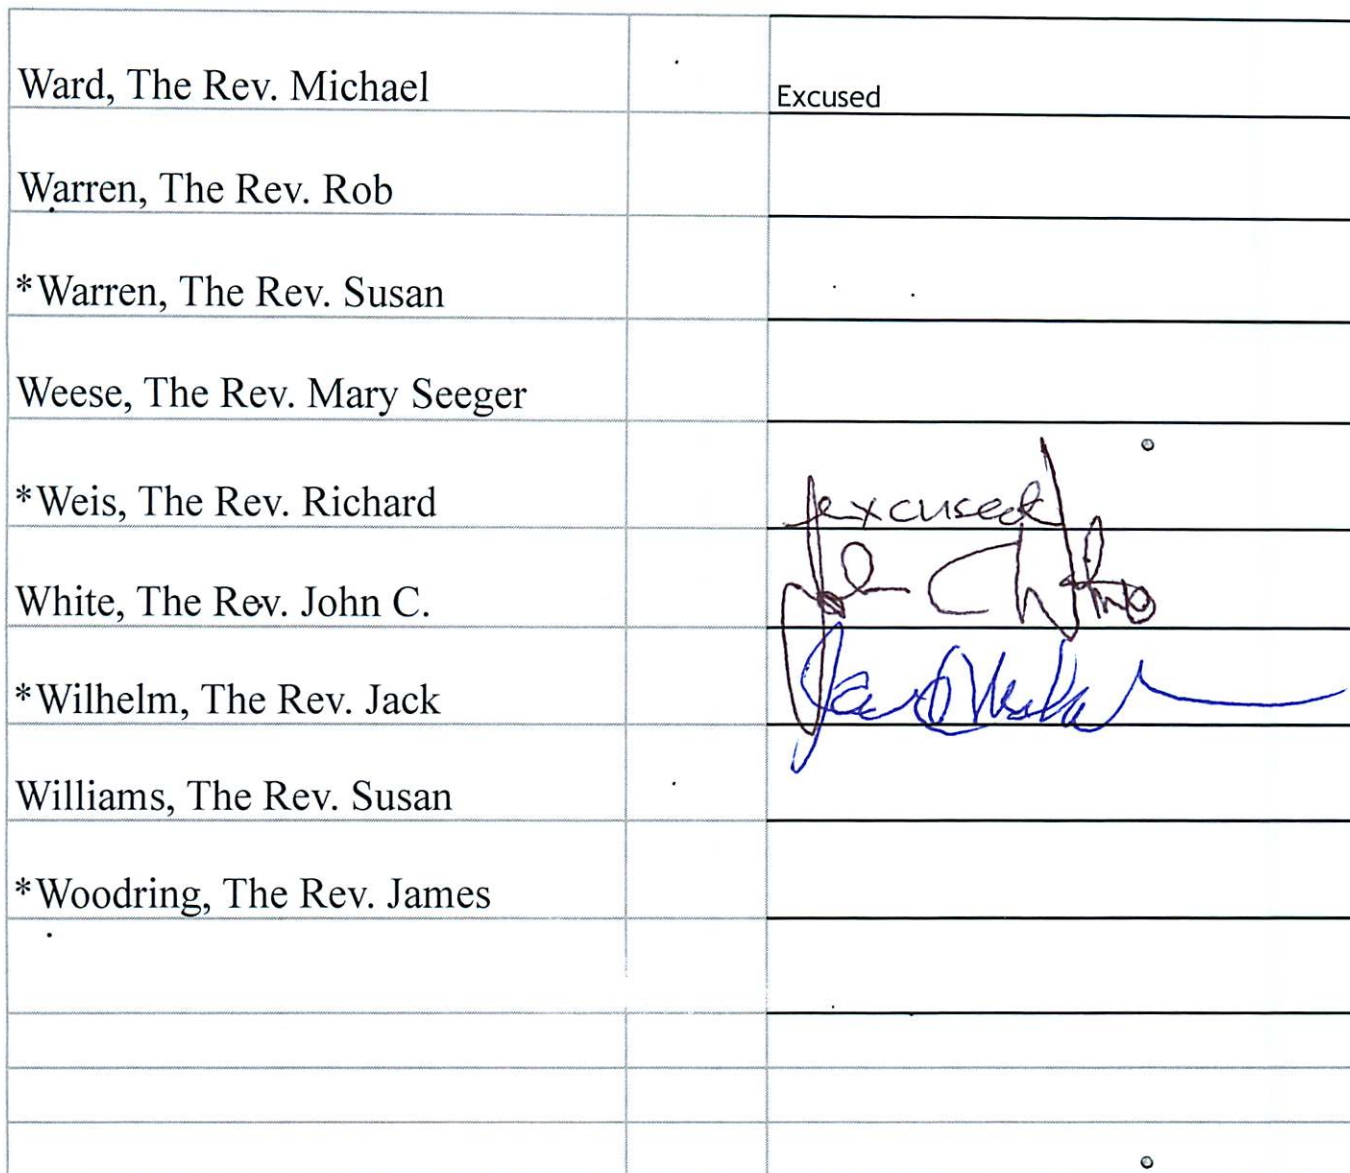 Ward, The Rev. Michael Excused
Warren, The Rev. Rob
*Warren, The Rev. Susan
Weese, The Rev. Mary Seeger
*Weis, The Rev. Richard excused
White, The Rev. John C. John C
*Wilhelm, The Rev. Jack
Williams, The Rev. Susan
*Woodring, The Rev. James